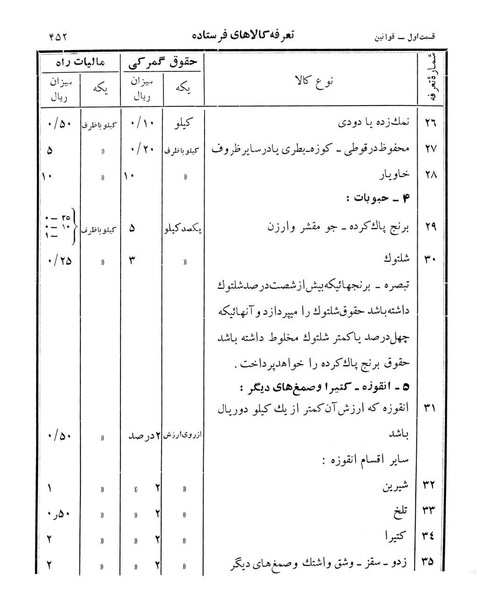 قسمت اول ـ قوانین تعرفه کالاهای فرستاده ۴۵۲
شمارهٔ تعرفه نوع کالا حقوق گمرکی مالیات راه
یکه میزان ریال یکه میزان ریال
۲۶ نمك زده یا دودی کیلو ۰/۱۰ کیلو باظرف ۰/۵۰
۲۷ محفوظ در قوطی ـ کوزه ـ بطری یا در سایر ظروف کیلو باظرف ۰/۲۰ » ۵
۲۸ خاویار » ۱۰ » ۱۰
۴ ـ حبوبات :
۲۹ برنج پاك کرده ـ جو مقشر و ارزن یکصد کیلو ۵ کیلو باظرف
۳۰ شلتوك » ۳ » ۰/۲۵
تبصره ـ برنجهائیکه بیش از شصت درصد شلتوك
داشته باشد حقوق شلتوك را میپردازد و آنهائیکه
چهل درصد یا کمتر شلتوك مخلوط داشته باشد
حقوق برنج پاك کرده را خواهد پرداخت .
۵ ـ انقوزه ـ کتیرا و صمغ‌های دیگر :
۳۱ انقوزه که ارزش آن کمتر از یك کیلو دو ریال
باشد از روی ارزش ۲ درصد » ۰/۵۰
سایر اقسام انقوزه :
۳۲ شیرین » ۲ » » ۱
۳۳ تلخ » ۲ » » ۰ر۵۰
۳۴ کتیرا » ۲ » » ۲
۳۵ زدو ـ سقز ـ وشق واشتك وصمغ‌های دیگر » ۲ » » ۲